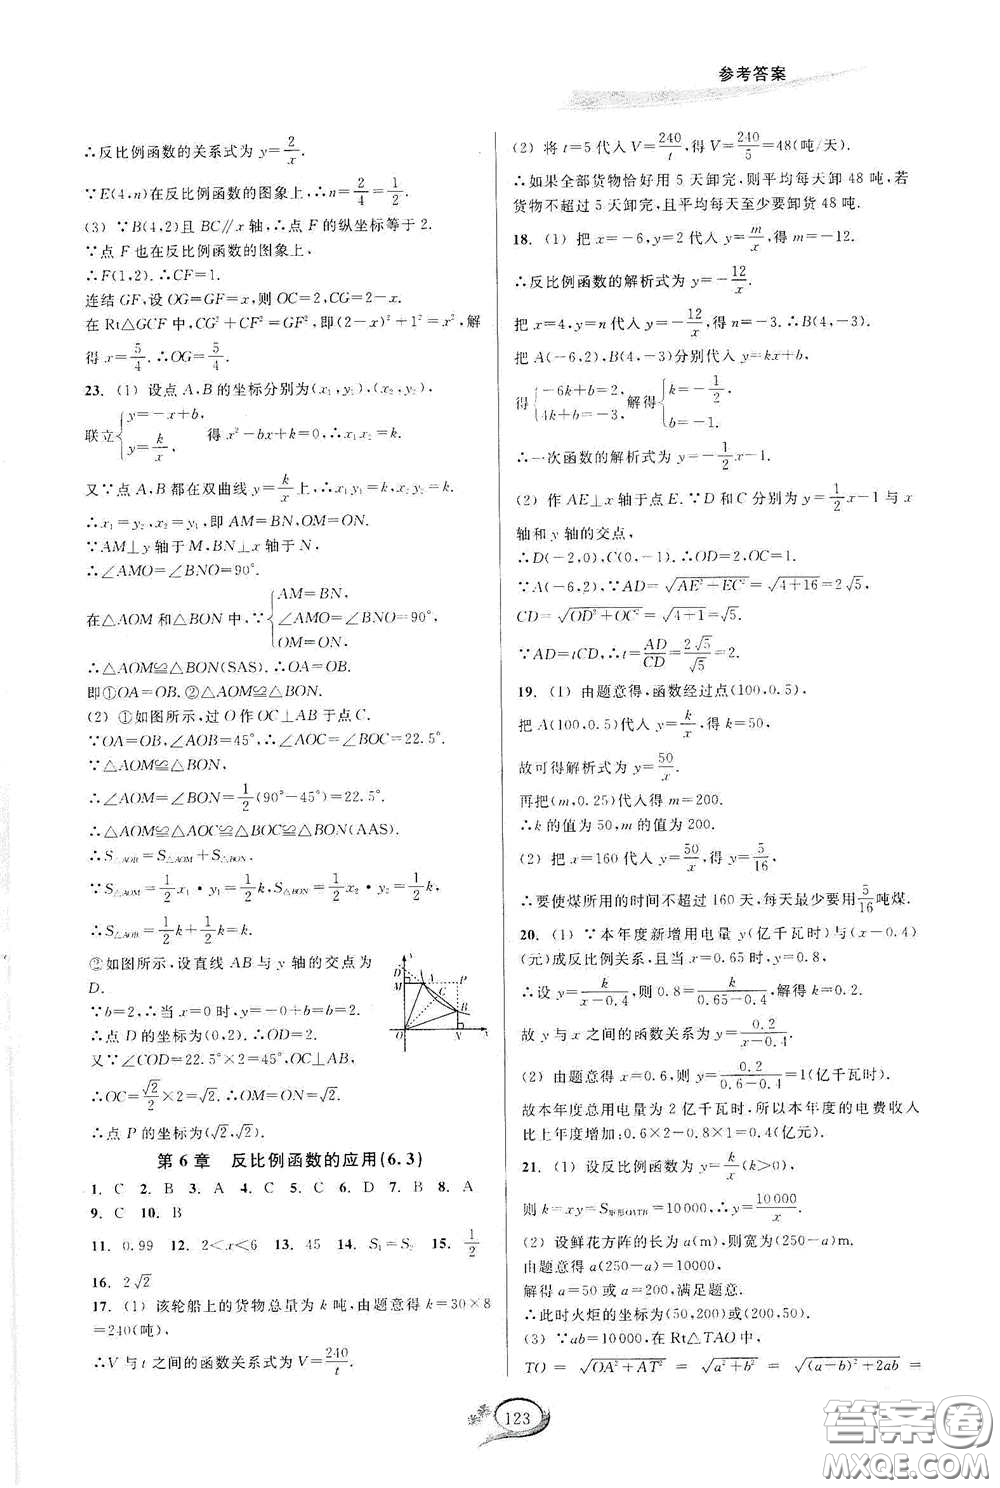 参考答案
∴反比例函数的关系式为 y=2/x.
∵E(4,n)在反比例函数的图象上,∴n=2/4=1/2.
(3) ∵B(4,2)且 BC∥x 轴,∴点 F 的纵坐标等于 2.
∵点 F 也在反比例函数的图象上,
∴F(1,2).∴CF=1.
连结 GF,设 OG=GF=x,则 OC=2,CG=2-x.
在 Rt△GCF 中,CG²+CF²=GF²,即(2-x)²+1²=x²,解
得 x=5/4.∴OG=5/4.
23. (1) 设点 A,B 的坐标分别为(x₁,y₁),(x₂,y₂),
联立{y=-x+b, y=k/x, 得 x²-bx+k=0,∴x₁x₂=k.
又∵点 A,B 都在双曲线 y=k/x 上,∴x₁y₁=k,x₂y₂=k.
∴x₁=y₂,x₂=y₁,即 AM=BN,OM=ON.
∵AM⊥y 轴于 M,BN⊥x 轴于 N,
∴∠AMO=∠BNO=90°.
在△AOM 和△BON 中,∵{AM=BN, ∠AMO=∠BNO=90°, OM=ON.
∴△AOM≌△BON(SAS).∴OA=OB.
即①OA=OB.②△AOM≌△BON.
(2) ①如图所示,过 O 作 OC⊥AB 于点 C.
∵OA=OB,∠AOB=45°,∴∠AOC=∠BOC=22.5°.
∵△AOM≌△BON,
∴∠AOM=∠BON=1/2(90°-45°)=22.5°.
∴△AOM≌△AOC≌△BOC≌△BON(AAS).
∴S△AOB=S△AOM+S△BON.
∵S△AOM=1/2x₁·y₁=1/2k,S△BON=1/2x₂·y₂=1/2k,
∴S△AOB=1/2k+1/2k=k.
②如图所示,设直线 AB 与 y 轴的交点为
D.
∵b=2,∴当 x=0 时,y=-0+b=2.
∴点 D 的坐标为(0,2).∴OD=2.
又∵∠COD=22.5°×2=45°,OC⊥AB,
∴OC=√2/2×2=√2.∴OM=ON=√2.
∴点 P 的坐标为(√2,√2).
y
D
M
A
P
C
B
O
N
x
第 6 章 反比例函数的应用(6.3)
1. C 2. B 3. A 4. C 5. C 6. D 7. B 8. A
9. C 10. B
11. 0.99 12. 2<x<6 13. 45 14. S₁=S₂ 15. 1/2
16. 2√2
17. (1) 该轮船上的货物总量为 k 吨,由题意得 k=30×8
=240(吨),
∴V 与 t 之间的函数关系式为 V=240/t.
(2) 将 t=5 代入 V=240/t,得 V=240/5=48(吨/天).
∴如果全部货物恰好用 5 天卸完,则平均每天卸 48 吨,若
货物不超过 5 天卸完,且平均每天至少要卸货 48 吨.
18. (1) 把 x=-6,y=2 代入 y=m/x,得 m=-12.
∴反比例函数的解析式为 y=-12/x.
把 x=4,y=n 代入 y=-12/x,得 n=-3.∴B(4,-3).
把 A(-6,2),B(4,-3)分别代入 y=kx+b,
得{-6k+b=2, 4k+b=-3, 解得{k=-1/2, b=-1.
∴一次函数的解析式为 y=-1/2x-1.
(2) 作 AE⊥x 轴于点 E.∵D 和 C 分别为 y=1/2x-1 与 x
轴和 y 轴的交点,
∴D(-2,0),C(0,-1).∴OD=2,OC=1.
∵A(-6,2),∵AD=√AE²+EC²=√4+16=2√5,
CD=√OD²+OC²=√4+1=√5.
∵AD=tCD,∴t=AD/CD=2√5/√5=2.
19. (1) 由题意得,函数经过点(100,0.5),
把 A(100,0.5)代入 y=k/x,得 k=50,
故可得解析式为 y=50/x.
再把(m,0.25)代入得 m=200.
∴k 的值为 50,m 的值为 200.
(2) 把 x=160 代入 y=50/x,得 y=5/16,
∴要使煤所用的时间不超过 160 天,每天最少要用5/16吨煤.
20. (1) ∵本年度新增用电量 y(亿千瓦时)与(x-0.4)
(元)成反比例关系,且当 x=0.65 时,y=0.8,
∴设 y=k/x-0.4,则 0.8=k/0.65-0.4,解得 k=0.2.
故 y 与 x 之间的函数关系为 y=0.2/x-0.4.
(2) 由题意得 x=0.6,则 y=0.2/0.6-0.4=1(亿千瓦时).
故本年度总用电量为 2 亿千瓦时,所以本年度的电费收入
比上年度增加:0.6×2-0.8×1=0.4(亿元).
21. (1) 设反比例函数为 y=k/x(k>0),
则 k=xy=S矩形OATB=10000,∴y=10000/x.
(2) 设鲜花方阵的长为 a(m),则宽为(250-a)m.
由题意得 a(250-a)=10000,
解得 a=50 或 a=200,满足题意.
∴此时火炬的坐标为(50,200)或(200,50).
(3) ∵ab=10000,在 Rt△TAO 中,
TO=√OA²+AT²=√a²+b²=√(a-b)²+2ab=
123
答案卷
MXQE.COM